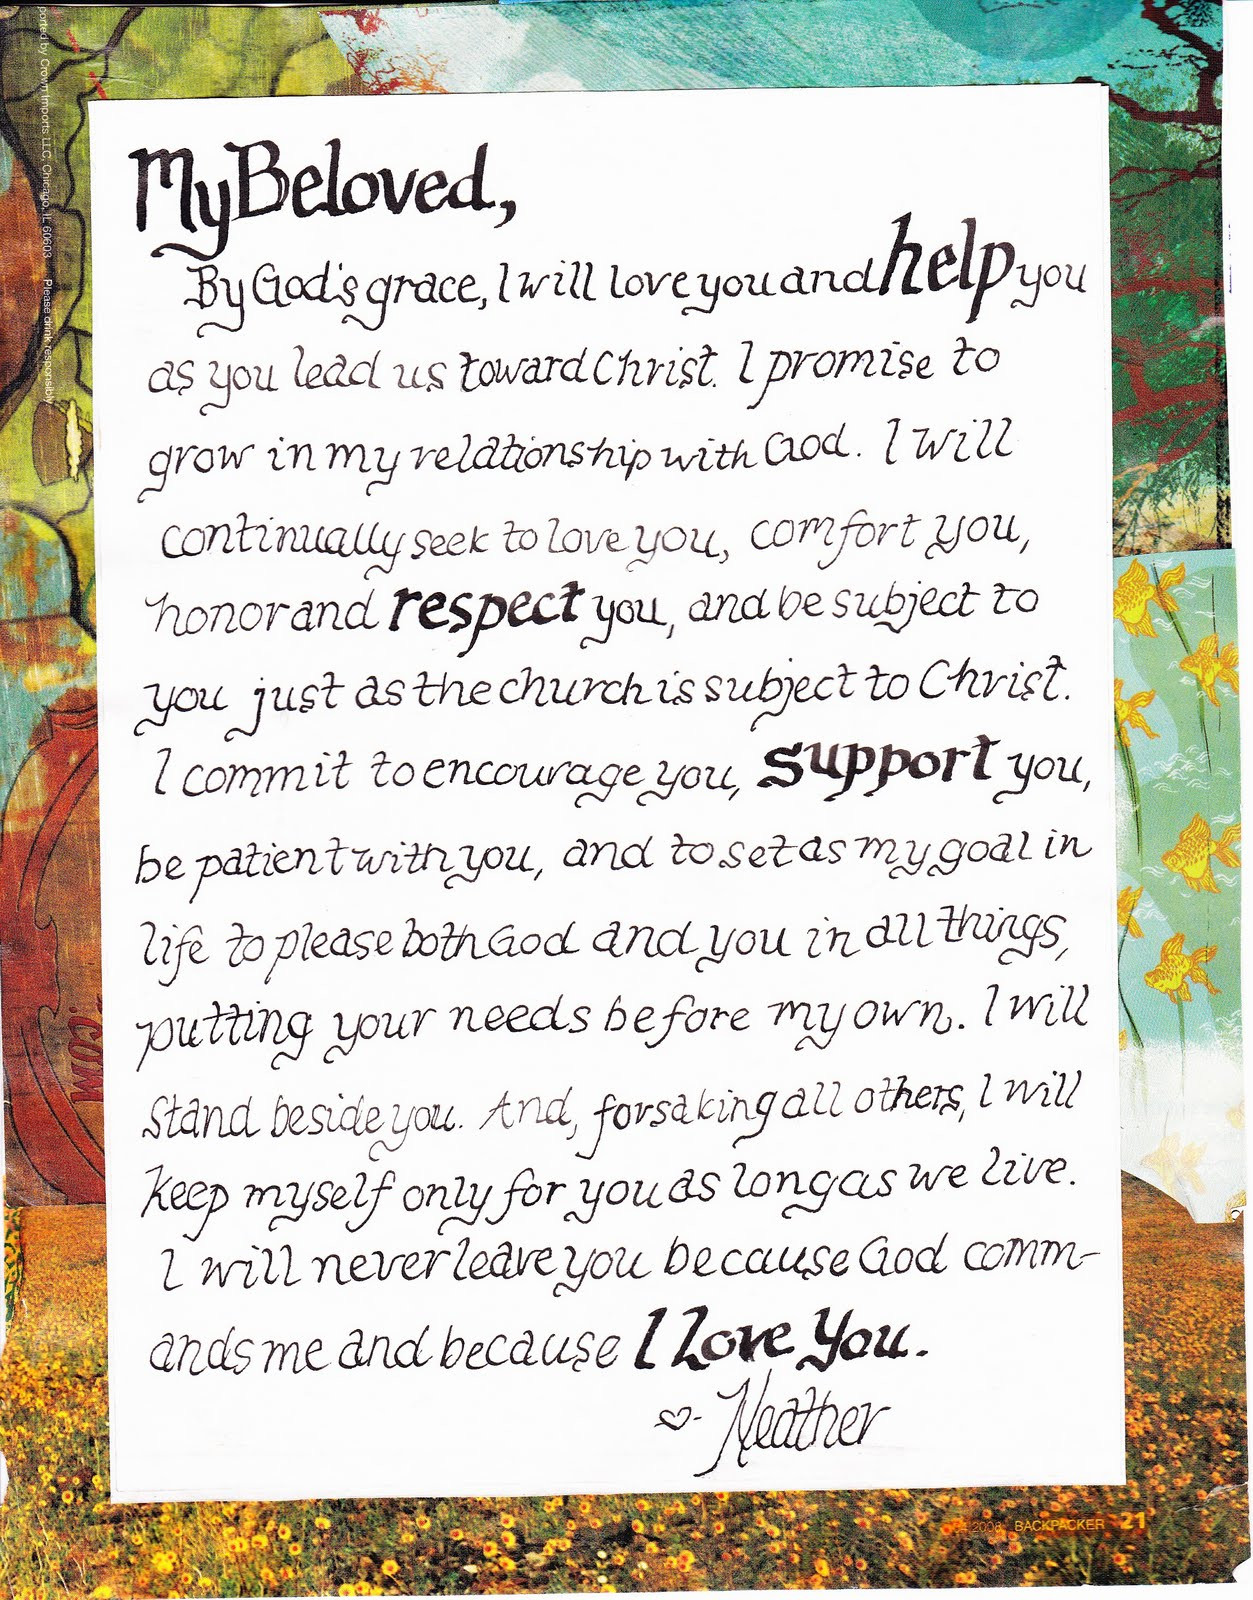 ported by Crown Imports LLC, Chicago, IL 60603 Please drink responsibly.
My Beloved,
By God's grace, I will love you and help you
as you lead us toward Christ. I promise to
grow in my relationship with God. I will
continually seek to love you, comfort you,
honor and respect you, and be subject to
you just as the church is subject to Christ.
I commit to encourage you, support you,
be patient with you, and to set as my goal in
life to please both God and you in all things,
putting your needs before my own. I will
stand beside you. And, forsaking all others, I will
keep myself only for you as long as we live.
I will never leave you because God comm-
ands me and because I Love You.
♡- Heather
.com
BACKPACKER 21